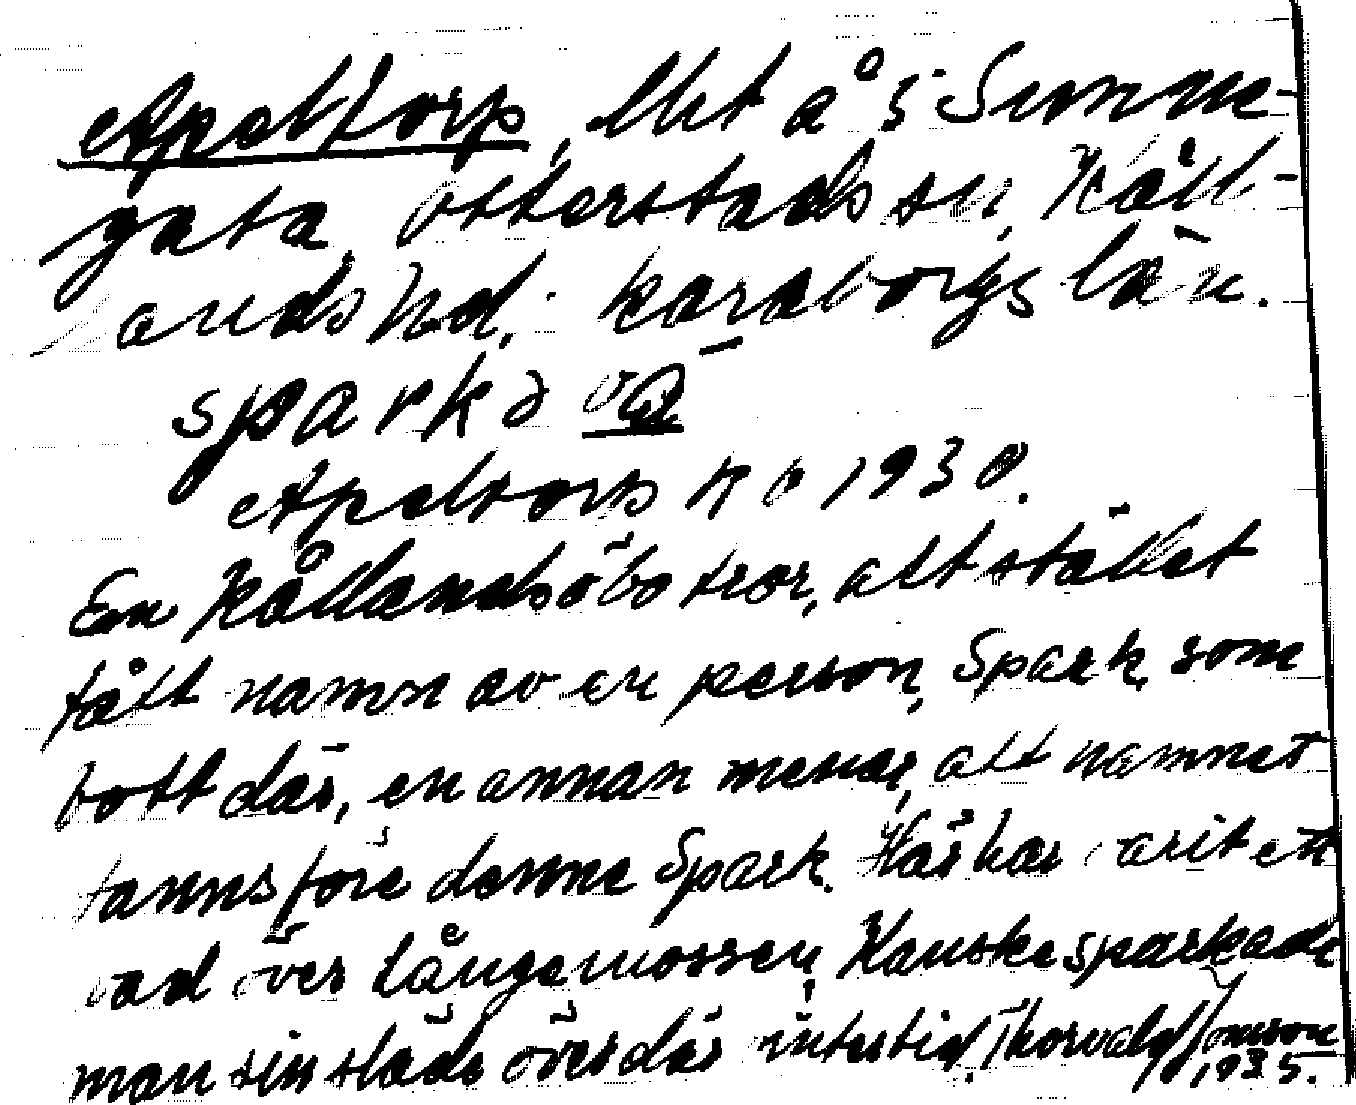 Apeltorp, Utä å i Sunne-
gata, Otterstads sn, Kål-
lands hd. Skaraborgs län.
spark ə va
Apeltorp k o 1930.
En Kållandsöbo tror, att stället
fått namn av en person, Spark, som
bott där, en annan menar, att namnet
fanns före denne Spark. Här har varit ett
vad över Långemossen. Kanske sparkade
man sin släde över där vintertid. Thorvald Jonsson
1935.